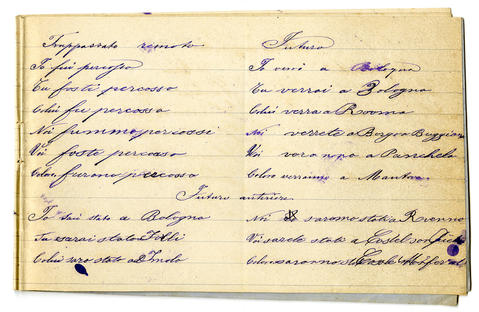 Trappassato remoto
Io fui percosso
Tu fosti percosso
Colui fu percosso
Noi fummo percossi
Voi foste percosso
Coloro furono percosso
Futuro
Io verrò a Bologna
Tu verrai a Bologna
Colui verra a Rooma
Noi verrete a Borgo a Buggiano
Voi a Panchela
Coloro verranno a Mantova
Futuro anteriore
Io sarò stato a Bologna
Tu sarai stato a
Colui saro stato a Imola
Noi saromo stati a
Voi sarete stati a Castel son
Coloro saronno